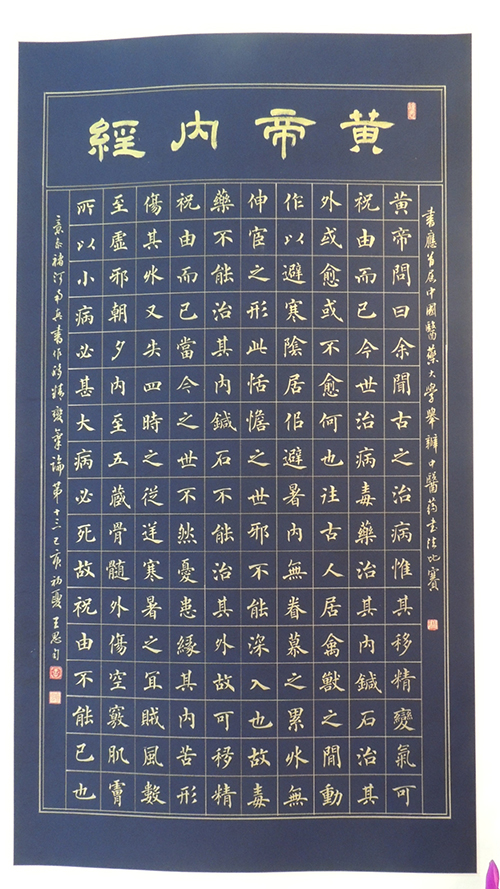 黃帝內經
書應首屆中國醫藥大學舉辦中醫药書法比賽
黃帝問曰余聞古之治病惟其移精變氣可
祝由而已今世治病毒藥治其內鍼石治其
外或愈或不愈何也往古人居禽獸之間動
作以避寒陰居佀避暑內無眷慕之累外無
伸宦之形此恬憺之世邪不能深入也故毒
藥不能治其內鍼石不能治其外故可移精
祝由而已當今之世不然憂患緣其內苦形
傷其外又失四時之從逆寒暑之宜賊風數
至虛邪朝夕內至五藏骨髓外傷空竅肌膚
所以小病必甚大病必死故祝由不能已也
褚河南書作移精變氣論第十三己亥初夏王恩